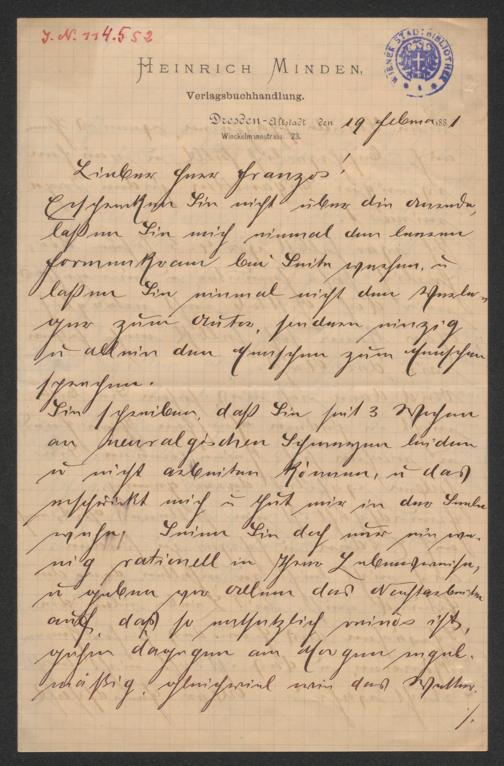 J. N. 114.552
WIENER STADTBIBLIOTHEK
HEINRICH MINDEN,
Verlagsbuchhandlung.
Dresden-Altstadt den 19 Februar 1881
Winckelmannstrasse 23.
Lieber Herr Franzos!
Erschrecken Sie nicht über die Anrede,
laßen Sie mich einmal den leeren
Formenkram bei Seite werfen, u
laßen Sie einmal nicht den Verle-
ger zum Autor, sondern einzig
u allein den Menschen zum Menschen
sprechen.
Sie schreiben, daß Sie seit 3 Wochen
an neuralgischen Schmerzen leiden
u nicht arbeiten können, u das
erschrickt mich u thut mir in der Seele
wehe. Seien Sie doch nur ein we-
nig rationell in Ihrer Lebensweise,
u geben vor allem das Nachtarbeiten
auf, das so entsetzlich ruinös ist,
gehen dagegen am Morgen regel-
mäßig, gleichviel wie das Wetter
./.